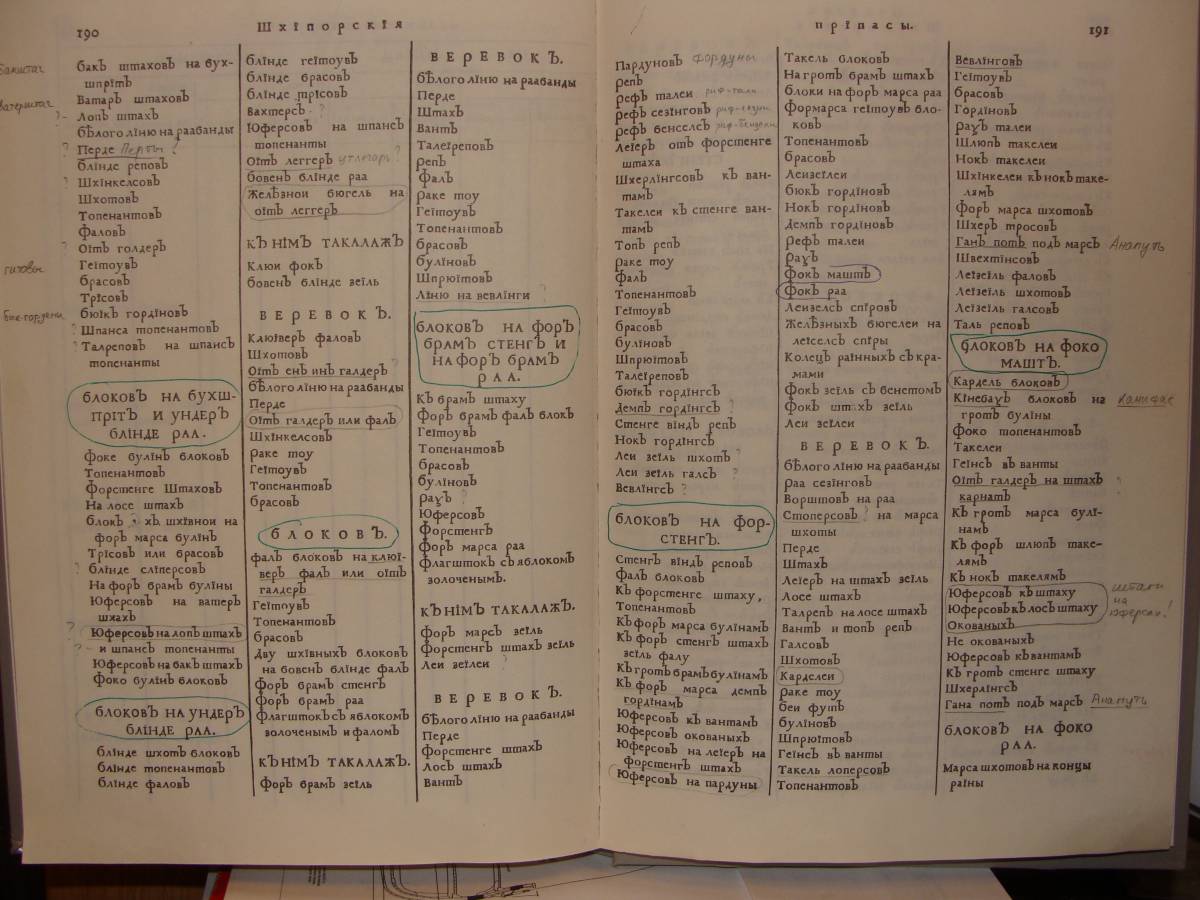 190
Шхіпорскія
бакштаг
ватерштаг
гитовы
бык-гордени
бакъ штаховъ на бух-
шпрітъ
Ватаръ штаховъ
?- Лопъ штахъ
бѣлого лїню на раабанды
? Перде Перты !
блїнде реповъ
? Шхїнкелсовъ
Шхотовъ
Топенантовъ
Фаловъ
? Оїтъ голдеръ
Геїтоувъ
брасовъ
Трїсовъ
бюїкъ гордїновъ
? Шпанса топенантовъ
? Талреповъ на шпансъ
топенанты
блоковъ на бухш-
прїтъ и ундеръ
блїнде раа.
Фоке булїнъ блоковъ
Топенантовъ
Форстенге Штаховъ
На лосе штахъ
блокъ ? хъ шхївнои на
форъ марса булїнъ
Трїсовъ или брасовъ
? блїнде слїперсовъ
На форъ брамъ булїны
Юферсовъ на ватеръ
шхахъ
? Юферсовъ на лопъ штахъ
?- и шпансъ топенанты
Юферсовъ на бакъ штахъ
Фоко булїнъ блоковъ
блоковъ на ундеръ
блїнде раа.
блїнде шхотъ блоковъ
блїнде топенантовъ
блїнде фаловъ
блїнде геїтоувъ
блїнде брасовъ
блїнде трїсовъ
Вахтерсъ ?
Юферсовъ на шпансъ
топенанты
Оїтъ леггеръ утлегарь ?
бовенъ блїнде раа
Желѣзнои бюгель на
оїтъ леггеръ
Къ нїмъ такалажъ
Клюи фокъ
бовенъ блїнде зеїль
веревокъ.
Клюїверъ фаловъ
Шхотовъ
Оїтъ енъ инъ галдеръ
бѣлого лїню на раабанды
Перде
Оїтъ галдеръ или фалъ
Шхїнкелсовъ
Раке тоу
Геїтоувъ
Топенантовъ
брасовъ
блоковъ.
фалъ блоковъ на клюї-
веръ фалъ или оїтъ
галдеръ
Геїтоувъ
Топенантовъ
брасовъ
Дву шхївныхъ блоковъ
на бовенъ блїнде фалъ
Форъ брамъ стенгъ
Форъ брамъ раа
Флагштокъ съ яблокомъ
золоченымъ и фаломъ
Къ нїмъ такалажъ.
Форъ брамъ зеїль
веревокъ.
бѣлого лїню на раабанды
Перде
Штахъ
Вантъ
Талеїреповъ
репъ
Фалъ
раке тоу
Геїтоувъ
Топенантовъ
брасовъ
булїновъ
Шпрюїтовъ
Лїню на вевлїнги ?
блоковъ на форъ
брамъ стенгъ и
на форъ брамъ
раа.
Къ брамъ штаху
Форъ брамъ фалъ блокъ
Геїтоувъ
Топенантовъ
брасовъ
булїновъ
рауъ ?
Юферсовъ
Форстенгъ
Форъ марса раа
Флагштокъ съ яблокомъ
золоченымъ.
Къ нїмъ такалажъ.
Форъ марсъ зеїль
Форстенгъ штахъ зеїль
Леи зеїлеи ?
веревокъ.
бѣлого лїню на раабанды
Перде
Форстенге штахъ
Лосъ штахъ
Вантъ
прїпасы.
191
Пардуновъ фордуны
репъ
Рефъ талеи риф-тали
рефъ сезїнговъ риф-сезни
рефъ бенселсъ
Леїеръ отъ форстенге
штаха
Шхерлїнгсовъ къ ван-
тамъ
Такелеи къ стенге ван-
тамъ
Топъ репъ
раке тоу
Фалъ
Топенантовъ
Геїтоувъ
брасовъ
булїновъ
Шпрюїтовъ
Талеїреповъ
бюїкъ гордїнгсъ
Демпъ гордїнгсъ ?
Стенге вїндъ репъ
Нокъ гордїнгсъ
Леи зеїль шхотъ ?
Леи зеїль галсъ ?
Вевлїнгсъ ?
блоковъ на фор-
стенгъ.
Стенгъ вїндъ реповъ
Фалъ блоковъ
Къ форстенге штаху,
Топенантовъ
Къ форъ марса булїнамъ
Къ форъ стенгъ штахъ
зеїль фалу
Къ гротъ брамъ булїнамъ
Къ форъ марса демпъ
гордїнамъ
Юферсовъ къ вантамъ
Юферсовъ окованыхъ
Юферсовъ на леїеръ на
форстенгъ штахъ
Юферсовъ на пардуны
Такель блоковъ
На гротъ брамъ штахъ
блоки на форъ марса раа
Формарса геїтоувъ бло-
ковъ
Топенантовъ
брасовъ
Леизеїлеи
бюкъ гордїновъ
Нокъ гордїновъ
Демпъ гордїновъ
Рефъ талеи
рауъ
Фокъ маштъ
Фокъ раа
Леизелсъ спїровъ
Желѣзныхъ бюгелеи на
леїселсъ спїры
Колецъ раїнныхъ съ кра-
мами
Фокъ зеїль съ бенетомъ
Фокъ штахъ зеїль
Леи зеїлеи
веревокъ.
бѣлого лїню на раабанды
Раа сезїнговъ
Ворштовъ на раа
Стоперсовъ ? на марса
шхоты
Перде
Штахъ
Леїеръ на штахъ зеїль
Лосе штахъ
Талрепъ на лосе штахъ
Вантъ и топъ репъ
Галсовъ
Шхотовъ
Карделеи
раке тоу
беи футъ
булїновъ
Шпрюїтовъ
Геїнсъ въ ванты
Такель лоперсовъ
Топенантовъ
Вевлїнговъ
Геїтоувъ
брасовъ
Гордїновъ
Рауъ талеи
Шлюпъ такелеи
Нокъ такелеи
Шхїнкелеи къ нокъ таке-
лямъ
Форъ марса шхотовъ
Шхеръ тросовъ
Ганъ потъ подъ марсъ Анапуть
Швехтїнсовъ
Леїзеїль фаловъ
Леїзеїль шхотовъ
Леїзеїль галсовъ
Таль реповъ
блоковъ на фоко
маштъ.
Кардель блоковъ
Кїнебахъ блоковъ на Канифас
гротъ булїны
Фоко топенантовъ
Такелеи
Геїнсъ въ ванты
Оїтъ галдеръ на штахъ ?
карнатъ
Къ гротъ марса булї-
намъ
Къ форъ шлюпъ таке-
лямъ
Къ нокъ такелямъ
Юферсовъ къ штаху
Юферсовъ къ лосъ штаху
Окованыхъ
штаги
на
юферсах!
Не окованыхъ
Юферсовъ къ вантамъ
Къ гротъ стенге штаху
Шхерлїнгсъ
Гана потъ подъ марсъ Анапуть
блоковъ на фоко
раа.
Марса шхотовъ на концы
раїны